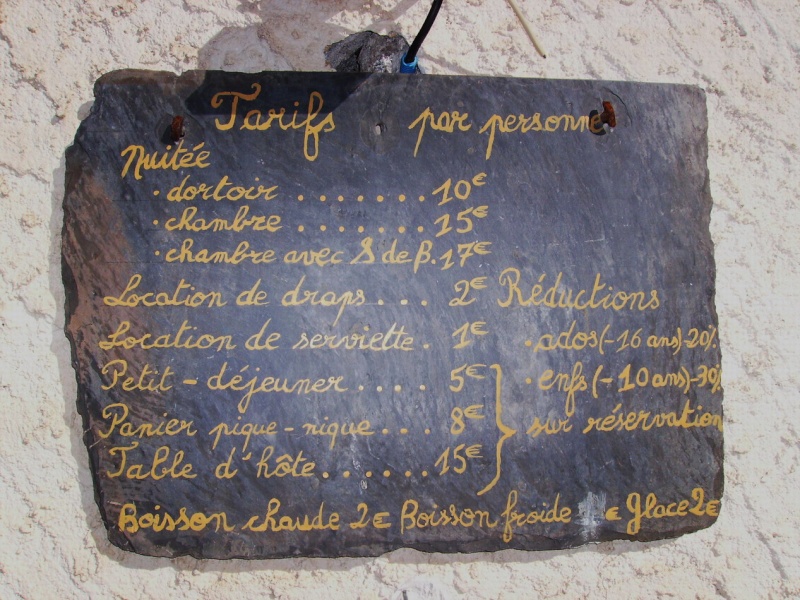 Tarifs par personne
Nuitée
· dortoir . . . . . . . 10€
· chambre . . . . . . . 15€
· chambre avec S de B. 17€
Location de draps . . . 2€
Location de serviette . 1€
Petit-déjeuner . . . . 5€
Panier pique-nique . . . 8€
Table d'hôte . . . . . . 15€
Réductions
· ados (-16 ans) -20%
· enfs (-10 ans) -30%
sur réservation
Boisson chaude 2€ Boisson froide € Glace 2€